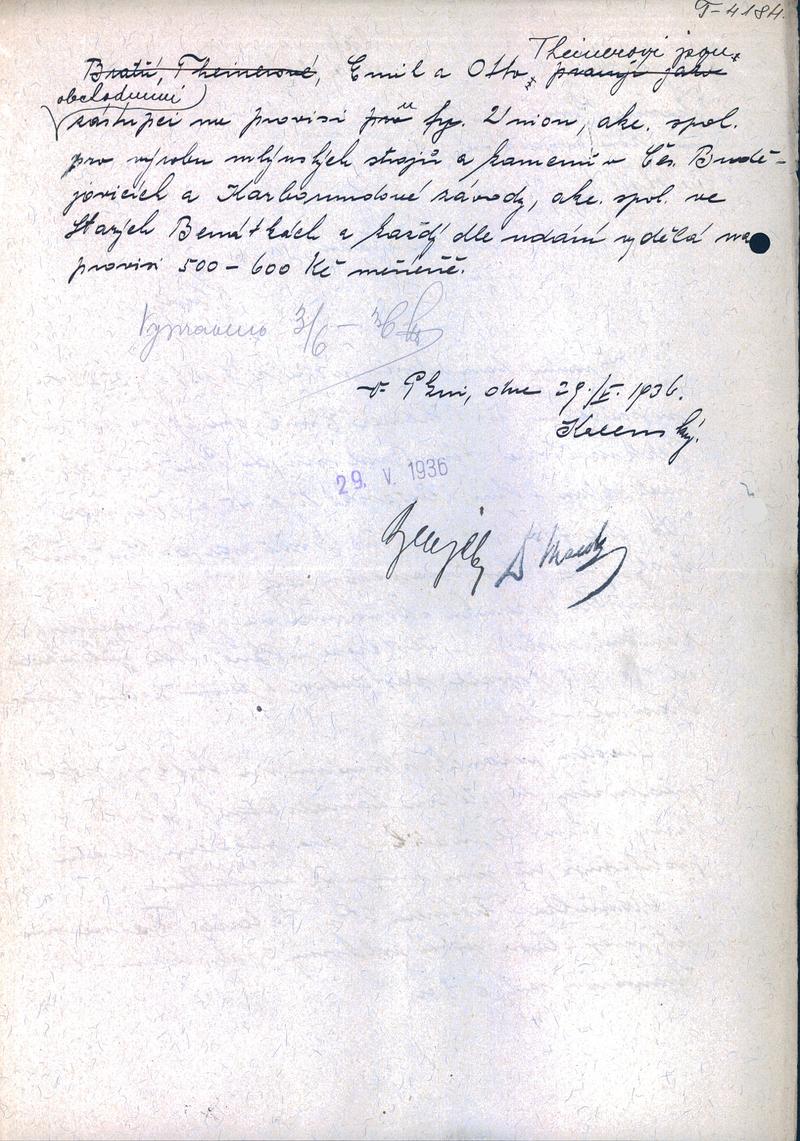 T-4184.
Theinerovi jsou
Bratři, Theinerové, Emil a Otto, pracují jako
obchodními
zástupci na provisi při u fy. Union, akc. spol.
pro výrobu mlýnských strojů a kamenů v Čes. Budě-
jovicích a Karborundové závody, akc. spol. ve
Starých Benátkách a každý dle udání vydělá na
provisi 500-600 Kč měsíčně.
Vypraveno 3/6 - 36
V Plzni, dne 29./V. 1936.
29. V. 1936